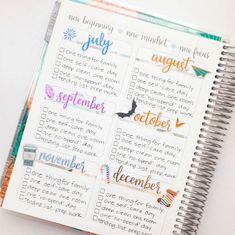 new beginning • new mindset • new focus
july
one thing for family
one self-care day
deep clean one room
one "no spend" day
lending list prep work
august
one thing for family
one self-care day
deep clean one room
one "no spend" day
lending list prep work
september
one thing for family
one self-care day
deep clean one room
one "no spend" day
list prep work
october
one thing for family
one self-care day
deep clean one room
one "no spend" day
list prep work
november
one thing for family
one "self-care" day
deep clean one room
one "no spend" day
list prep work
december
one thing for family
one self-care day
deep clean one room
one "no spend" day
list prep work